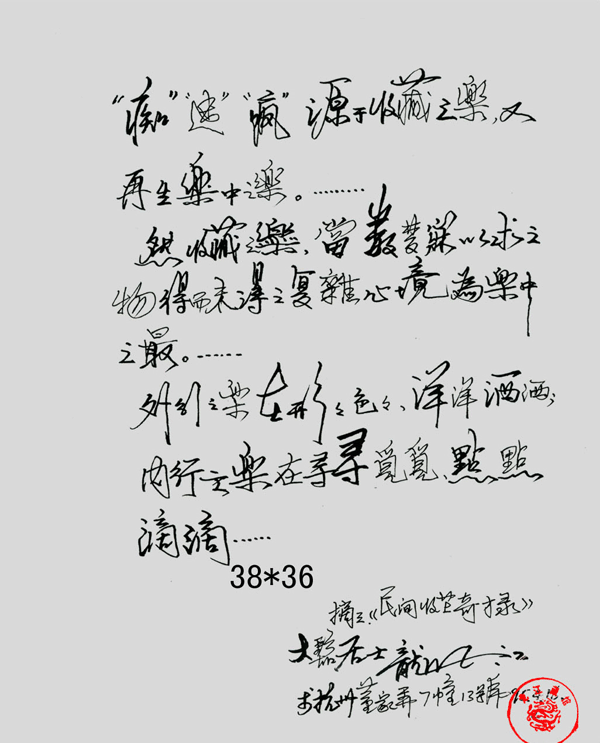 “痴”“迷”“疯”源于收藏之樂，又
再生樂中之樂。………
然收藏之樂，當數夢寐以求之
物得而未得之复雜心境為樂中
之最。……
外行之樂在形々色々、洋洋洒洒；
内行之樂在尋尋覓覓，點點
滴滴……
38*36
摘之《民间收芷奇才录》
大 居士龍
杭州董家弄7幢13號